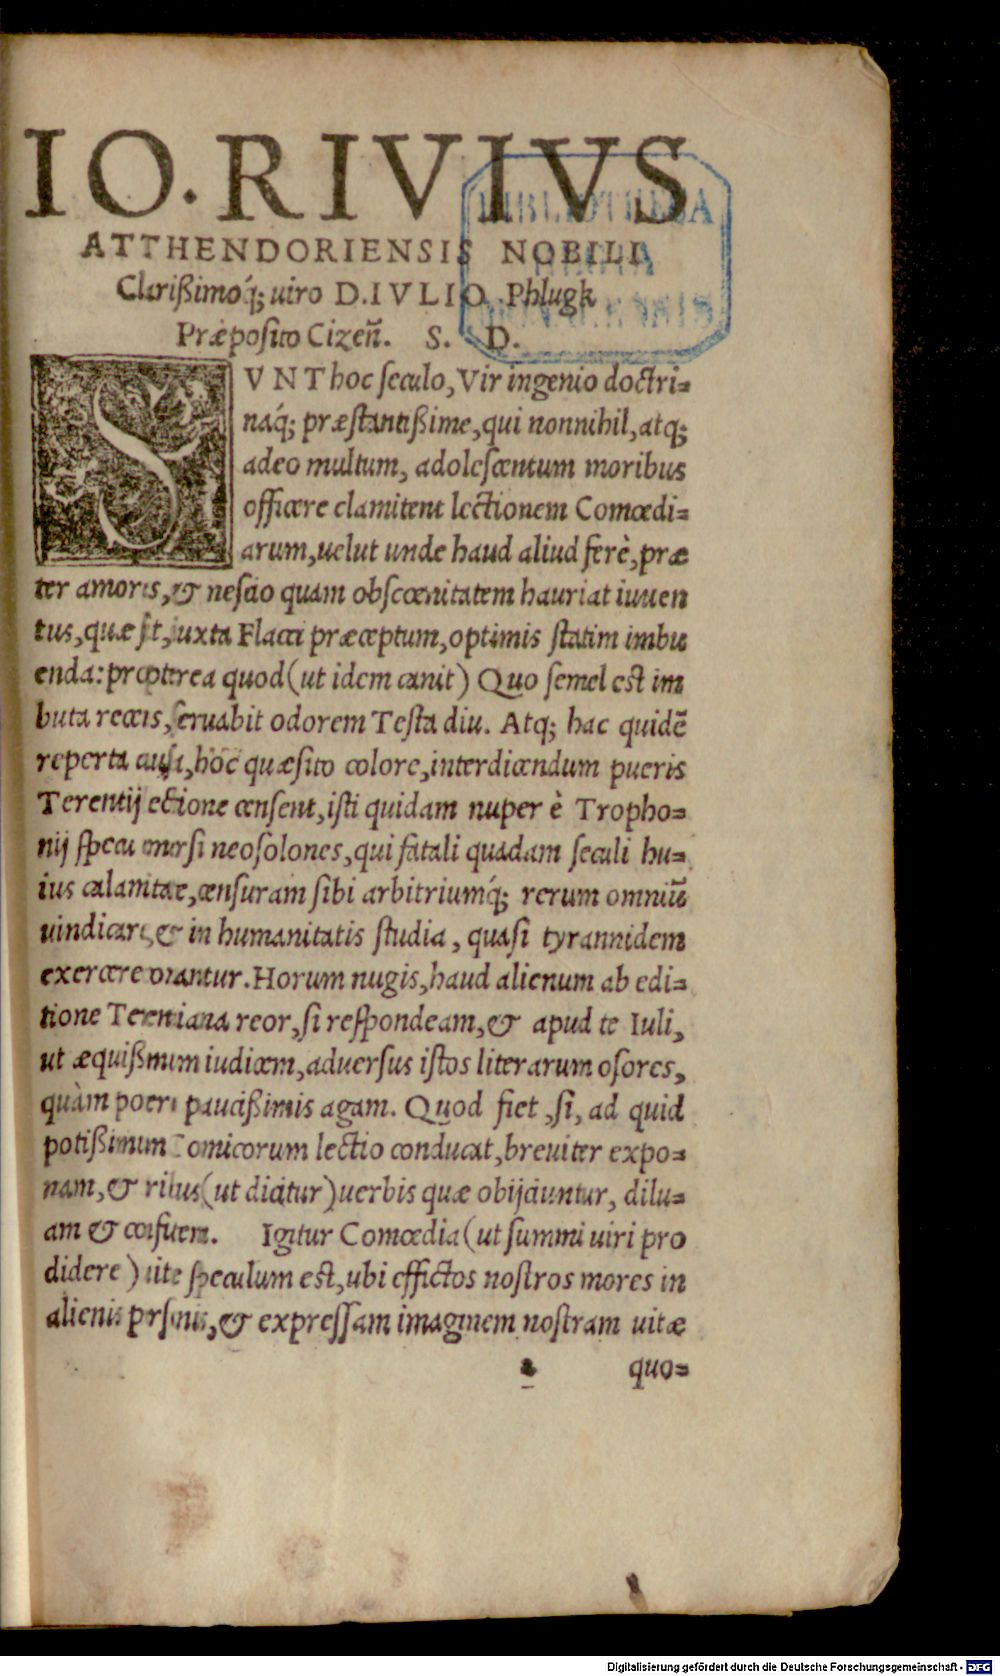 IO. RIVIVS
ATTHENDORIENSIS NOBILI
Clarißimoq́; uiro D. IVLIO Phlugk
Præposito Cizeñ. S. D.
BIBLIOTHECA
REGIA
MONACENSIS
SVNT hoc seculo, Vir ingenio doctri=
naq́; præstantißime, qui nonnihil, atq;
adeo multum, adolescentum moribus
officere clamitent lectionem Comœdi=
arum, uelut unde haud aliud ferè, præ
ter amores, & nescio quam obscœnitatem hauriat iuuen
tus, quæ sit, iuxta Flacci præceptum, optimis statim imbu
enda: propterea quod (ut idem canit) Quo semel est im
buta recens, seruabit odorem Testa diu. Atq; hac quidē
reperta causa, hoc quæsito colore, interdicendum pueris
Terentij lectione censent, isti quidam nuper è Tropho=
nij specu emersi neosolones, qui fatali quadam seculi hu=
ius calamitate, censuram sibi arbitriumq́; rerum omniū
uindicare, & in humanitatis studia, quasi tyrannidem
exercere conantur. Horum nugis, haud alienum ab edi=
tione Terentiana reor, si respondeam, & apud te Iuli,
ut æquißimum iudicem, aduersus istos literarum osores,
quàm potero paucißimis agam. Quod fiet, si, ad quid
potißimum Comicorum lectio conducat, breuiter expo=
nam, & (ut dicitur) uerbis quæ obijciuntur, dilu=
am & Igitur Comœdia (ut summi uiri pro
didere) uitæ speculum est, ubi effictos nostros mores in
alienis personis, & expressam imaginem nostram uitæ
a
quo=
Digitalisierung gefördert durch die Deutsche Forschungsgemeinschaft - DFG